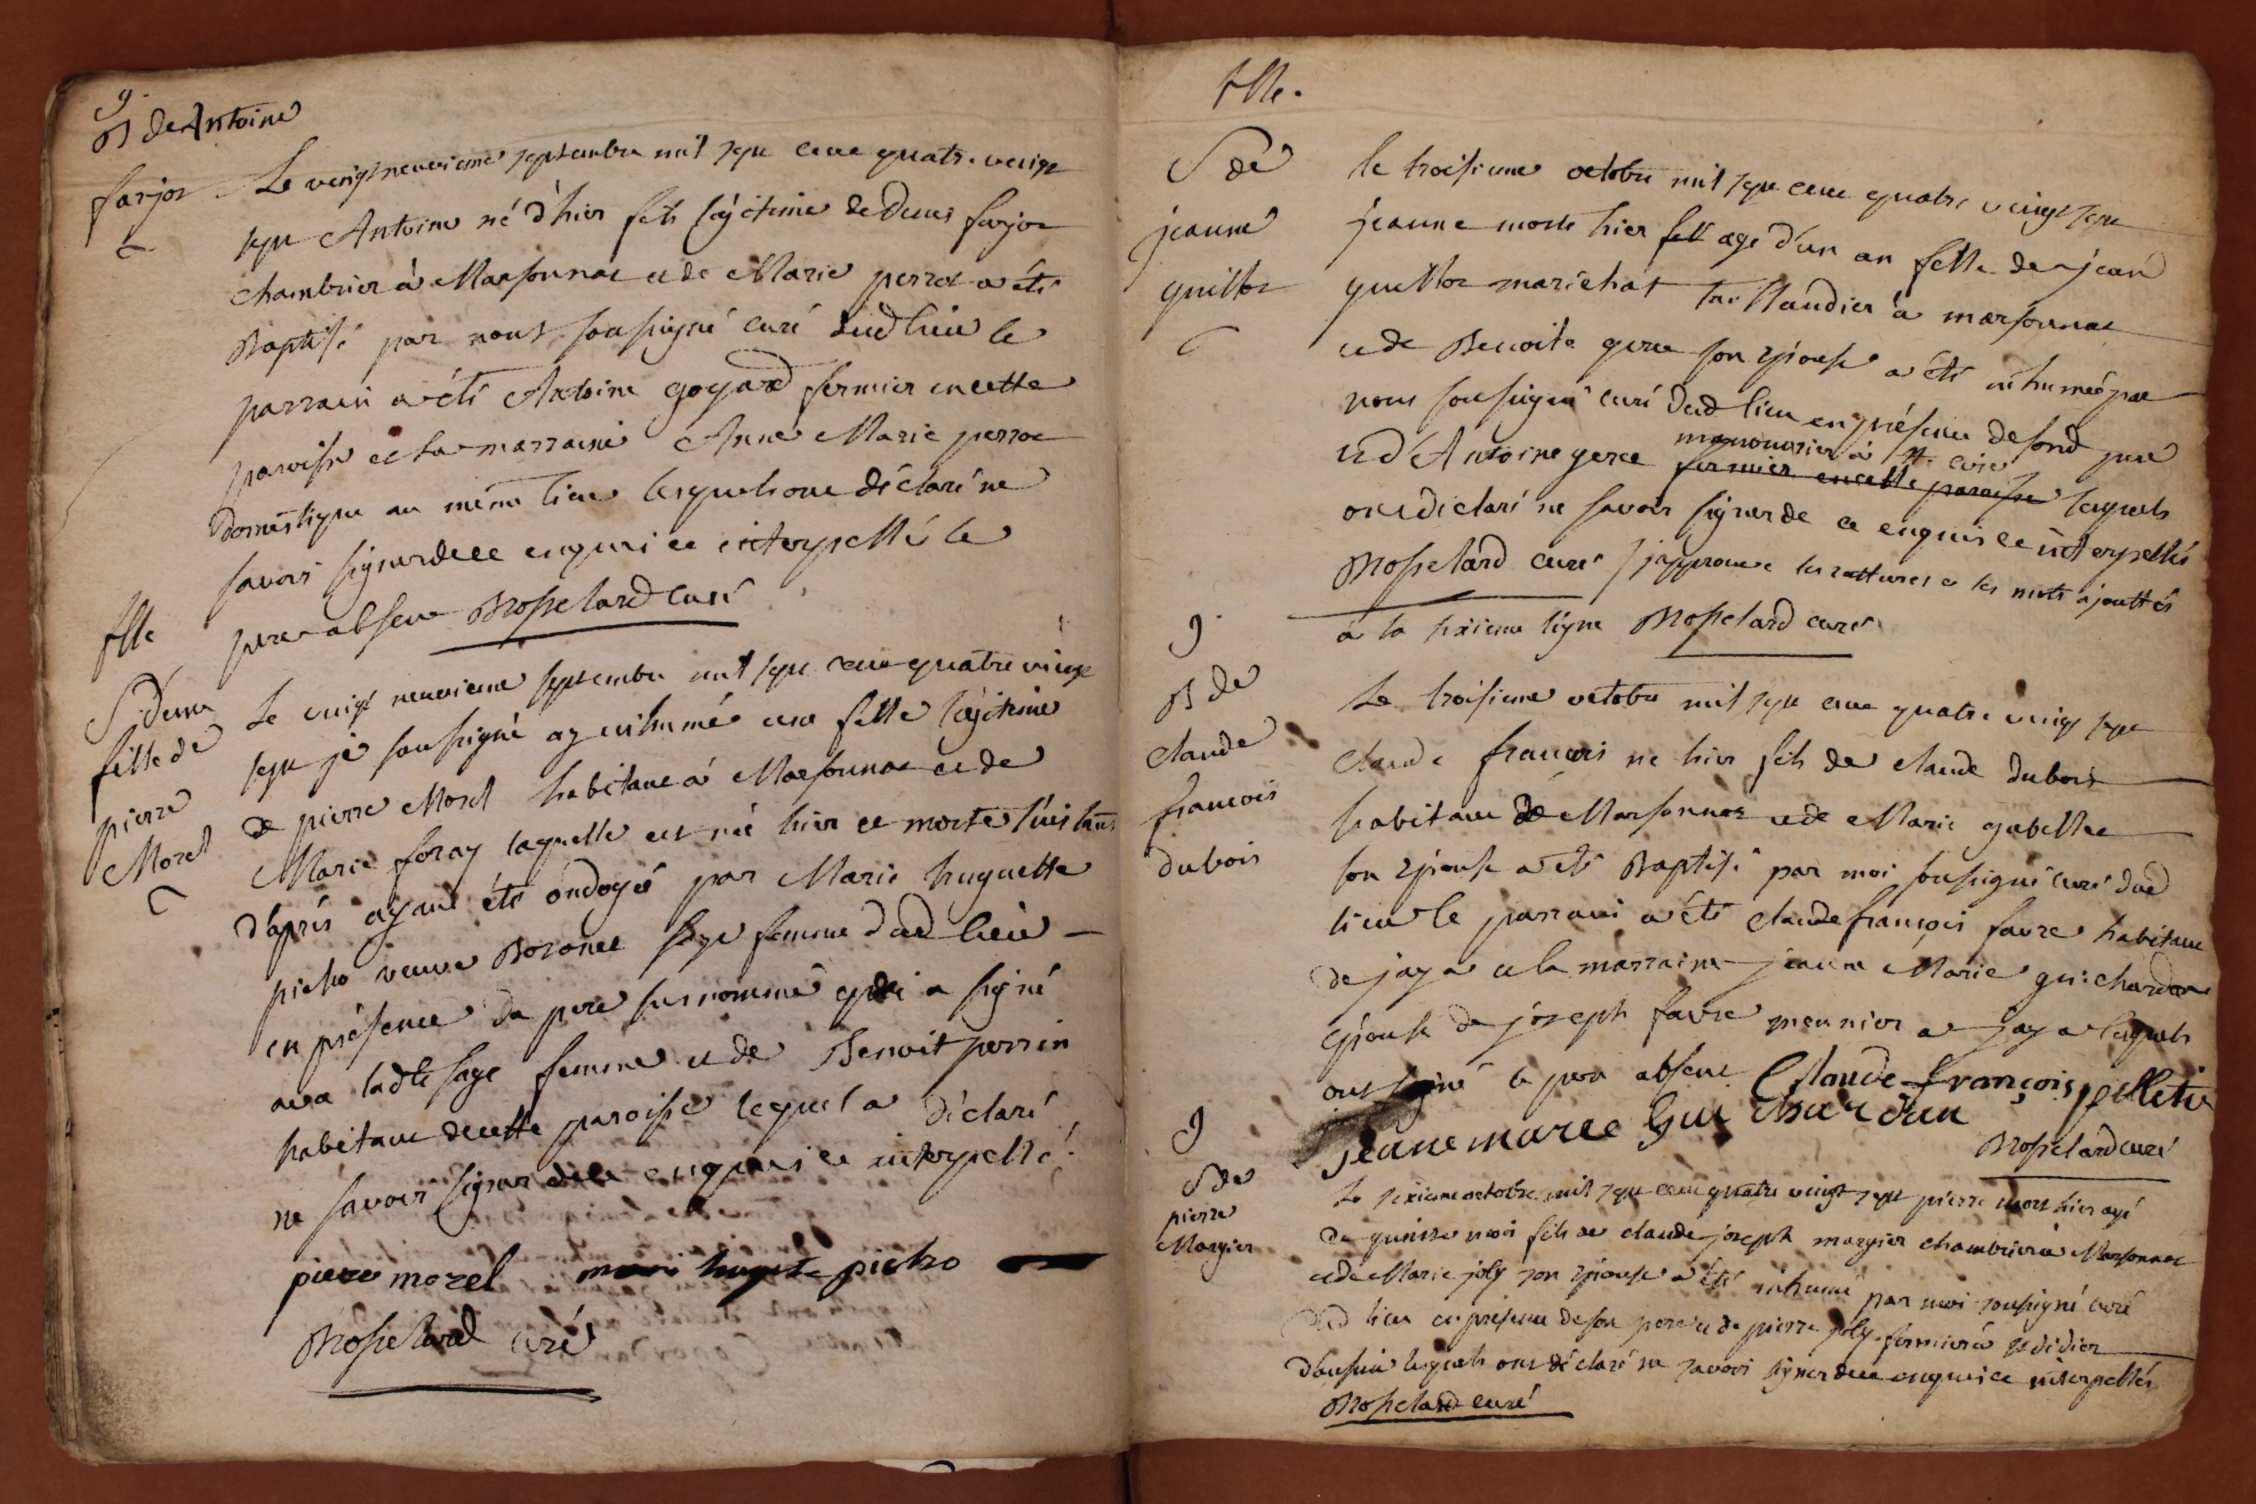 g.
B de Antoine
farjot
Le vingt neuvieme septembre mil sept cent quatre vingt
sept Antoine né d'hier fils légitime de Denis farjot
chambrier à Marsonnat et de Marie perret a été
Baptisé par nous soussigné curé dud lieu le
parrain a été Antoine goyard fermier en cette
paroisse et la marraine Anne Marie perrot
domestique au même lieu lesquels ont déclaré ne
savoir signer de ce enquis et interpellé le
pere absent Mosselard curé
flle
S d'une
fille de
pierre
Morel
Le vingt neuvieme septembre mil sept cent quatre vingt
sept je soussigné ay inhumé une fille légitime
de pierre Morel habitant à Marsonnat et de
Marie foray laquelle est née hier et morte l'instant
d'après ayant été ondoyé par Marie huguette
picho veuve sage femme dud lieu
en présence du pere susnommé qui a signé
avec ladte sage femme et de Benoit perrin
habitant de cette paroisse lequel a déclaré
ne savoir signer de ce enquis et interpellé.
pierre morel mari hugete picho
Mosselard curé
flle.
S de
jeanne
guillot
le troisieme octobre mil sept cent quatre vingt sept
jeanne morte hier agé d'un an fille de jean
guillot marichat taillandier à marsonnat
et de Benoite gere son epouse a été inhumée par
nous soussigné curé dud lieu en présence de sond pere
manouvrier à st. cire
et d'Antoine gere fermier en cette paroisse lesquels
ont déclaré ne savoir signer de ce enquis et interpellés
Mosselard curé j'approuve les rattures et les mots ajouttés
à la sixieme ligne Mosselard curé
g.
B de
claude
francois
dubois
Le troisieme octobre mil sept cent quatre vingt sept
claude francois né hier fils de claude dubois
habitant de Marsonnat et de Marie
son epouse a été Baptisé par moi soussigné curé dud
lieu le parrain a été claude françois favre habitant
de jaya et la marraine jeanne Marie guichardan
epouse de joseph favre meunier a jaya lesquels
ont signé le pere absent Claude françois pelletie
jeane maree Gui chardan
Mosselard curé
g
S de
pierre
Margier
Le sixieme octobre mil sept cent quatre vingt sept pierre mort hier agé
de quinze mois fils de claude joseph margier chambrier à Marsonnat
et de Marie joly son epouse a été inhumé par moi soussigné curé
dud lieu en présence de son pere et de pierre joly fermier à st didier
d'aussiat lesquels ont déclaré ne savoir signer de ce enquis et interpellés
Mosselard curé